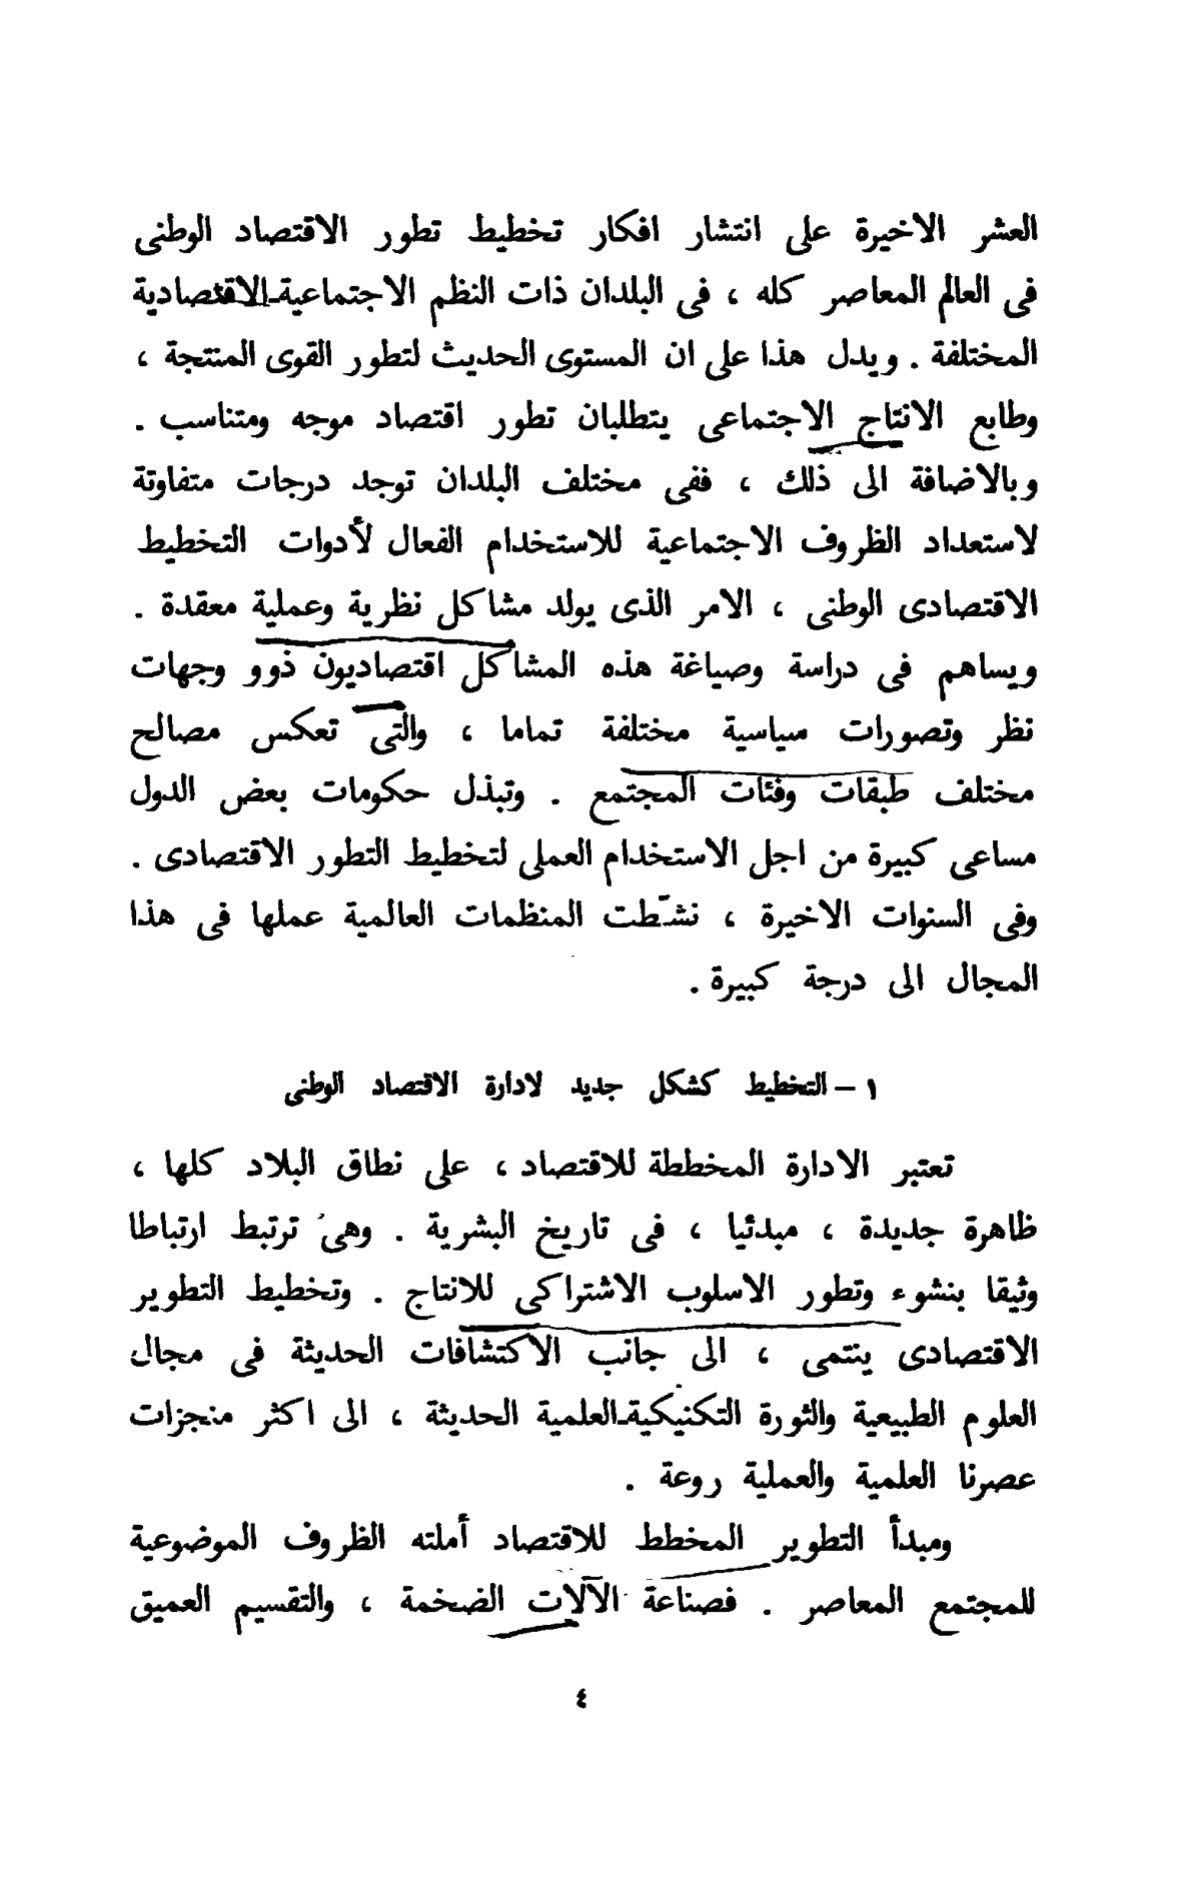 العشر الاخيرة على انتشار افكار تخطيط تطور الاقتصاد الوطنى
فى العالم المعاصر كله ، فى البلدان ذات النظم الاجتماعية-الاقتصادية
المختلفة . ويدل هذا على ان المستوى الحديث لتطور القوى المنتجة ،
وطابع الانتاج الاجتماعى يتطلبان تطور اقتصاد موجه ومتناسب .
وبالاضافة الى ذلك ، ففى مختلف البلدان توجد درجات متفاوتة
لاستعداد الظروف الاجتماعية للاستخدام الفعال لأدوات التخطيط
الاقتصادى الوطنى ، الامر الذى يولد مشاكل نظرية وعملية معقدة .
ويساهم فى دراسة وصياغة هذه المشاكل اقتصاديون ذوو وجهات
نظر وتصورات سياسية مختلفة تماما ، والتى تعكس مصالح
مختلف طبقات وفئات المجتمع . وتبذل حكومات بعض الدول
مساعى كبيرة من اجل الاستخدام العملى لتخطيط التطور الاقتصادى .
وفى السنوات الاخيرة ، نشّطت المنظمات العالمية عملها فى هذا
المجال الى درجة كبيرة .
١ – التخطيط كشكل جديد لادارة الاقتصاد الوطنى
تعتبر الادارة المخططة للاقتصاد ، على نطاق البلاد كلها ،
ظاهرة جديدة ، مبدئيا ، فى تاريخ البشرية . وهى ترتبط ارتباطا
وثيقا بنشوء وتطور الاسلوب الاشتراكى للانتاج . وتخطيط التطوير
الاقتصادى ينتمى ، الى جانب الاكتشافات الحديثة فى مجال
العلوم الطبيعية والثورة التكنيكية-العلمية الحديثة ، الى اكثر منجزات
عصرنا العلمية والعملية روعة .
ومبدأ التطوير المخطط للاقتصاد أملته الظروف الموضوعية
للمجتمع المعاصر . فصناعة الآلات الضخمة ، والتقسيم العميق
٤